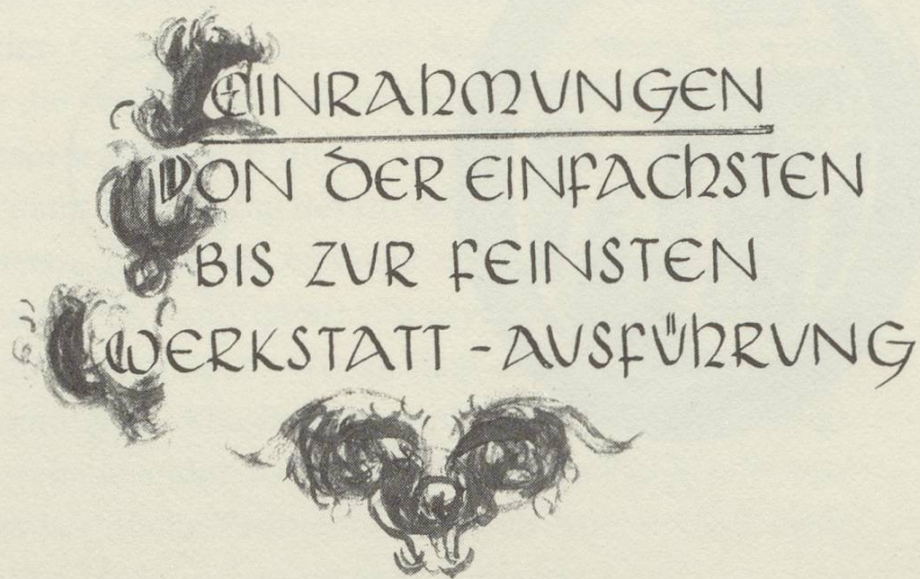 EINRAHMUNGEN
VON DER EINFACHSTEN
BIS ZUR FEINSTEN
WERKSTATT - AUSFÜHRUNG